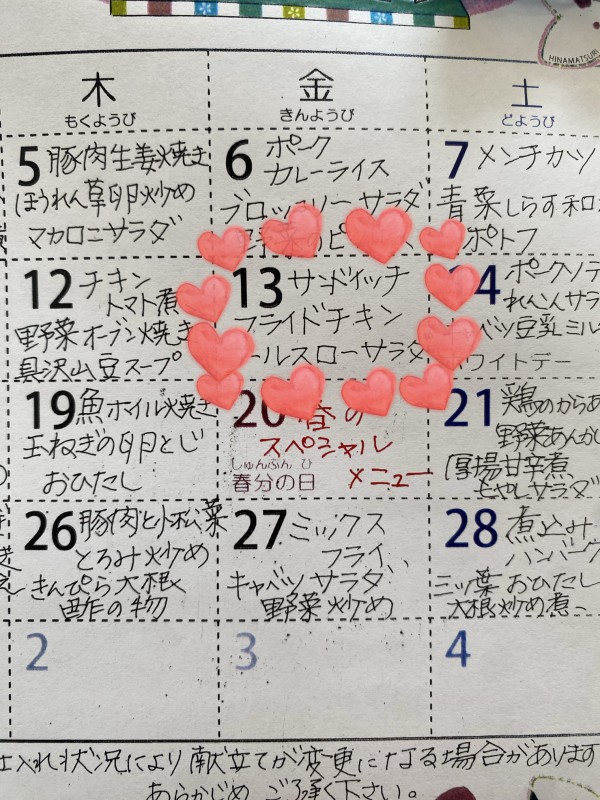 HINAMATSURI
木 金 土
もくようび きんようび どようび
5 豚肉生姜焼き
ほうれん草卵炒め
マカロニサラダ
6 ポーク
カレーライス
ブロッコリーサラダ
7 メンチカツ
青菜しらす和
ポトフ
12 チキン
トマト煮
野菜オーブン焼き
具沢山豆スープ
13 サンドイッチ
フライドチキン
ールスローサラダ
4 ポークソテ
れんこんサラ
ベツ豆乳ミル
ワイトデー
19 魚ホイル焼き
玉ねぎの卵とじ
おひたし
20 春の
スペシャル
しゅんぶん ひ
春分の日 メニュー
21 鶏のからあ
野菜あんか
厚揚甘辛煮
もやしサラダ
26 豚肉と小松菜
とろみ炒め
きんぴら大根
酢の物
27 ミックス
フライ
キャベツサラダ
野菜炒め
28 煮込み
ハンバーグ
三ッ葉おひたし
大根炒め煮
2 3 4
仕入れ状況により献立てが変更になる場合があります
あらかじめご了承く下さい。